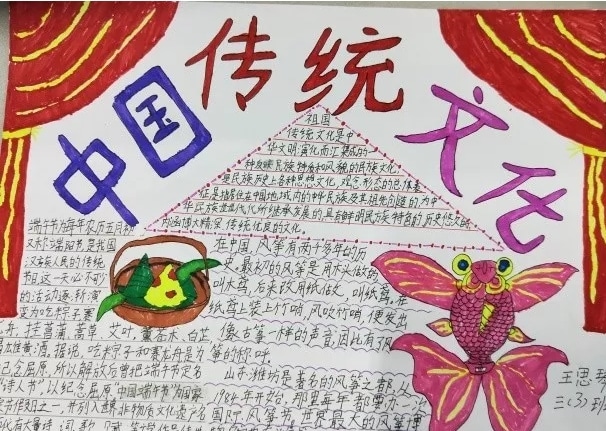 中国传统文化
祖国
传统文化是中
华文明演化而汇集成的一
种反映民族特质和风貌的民族文化,
是民族历史上各种思想文化、观念形态的总体表
征是指居住在中国地域内的中华民族及其祖先创造的为中
华民族世世代代所继承发展的具有鲜明民族特色的历史悠久的
内涵博大精深传统优良的文化。
端午节为每年农历五月初
又称端阳节是我国
汉族人民的传统
节日,这一天必不可
的活动逐渐演
变为吃粽子赛
舟,挂菖蒲,蒿草,艾叶,薰苍术,白芷
雄黄酒,据说,吃粽子和赛龙舟是为
纪念屈原,所以解放后曾把端午节定名
"诗人节"以纪念屈原"中国端午节"为国家
之一,并列入世界非物质文化遗产名
在中国,风筝有两千多年的历
史,最初的风筝是用木头做的
叫木鸢,后来改用纸做,叫纸鸢,在
纸鸢上装上竹哨,风吹竹哨,便发出
像古筝一样的声音,因此有了风
筝的称呼
山东潍坊是著名的风筝之都,从
1984年开始,那里每年都要办一次
国际风筝节,世界最大的风筝博
王思
三(3)班